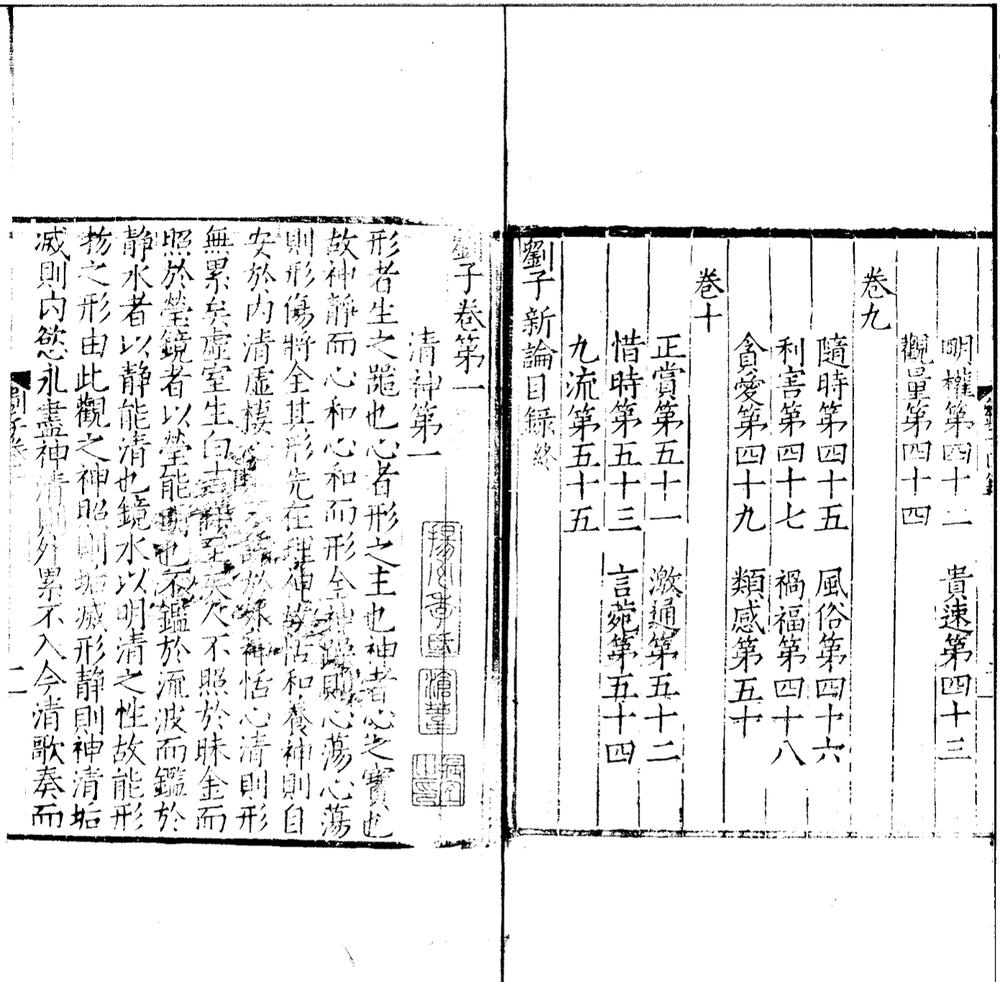 明權第四十二 貴速第四十三
觀量第四十四
卷九
隨時第四十五 風俗第四十六
利害第四十七 禍福第四十八
貪愛第四十九 類感第五十
卷十
正賞第五十一 激通第五十二
惜時第五十三 言菀第五十四
九流第五十五
劉子新論目録終
劉子卷第一
清神第一
形者生之噐也心者形之主也神者心之寳也
故神靜而心和心和而形全神躁則心蕩心蕩
則形傷將全其形先在理神故恬和養神則自
安於内清虛棲心則不誘於外神恬心清則形
無累矣虛室生白吉祥至矣人不照於昧金而
照於瑩鏡者以瑩能明也不鑑於流波而鑑於
静水者以静能清也鏡水以明清之性故能形
物之形由此觀之神照則垢滅形静則神清垢
滅則内慾永盡神清則外累不入今清歌奏而
二